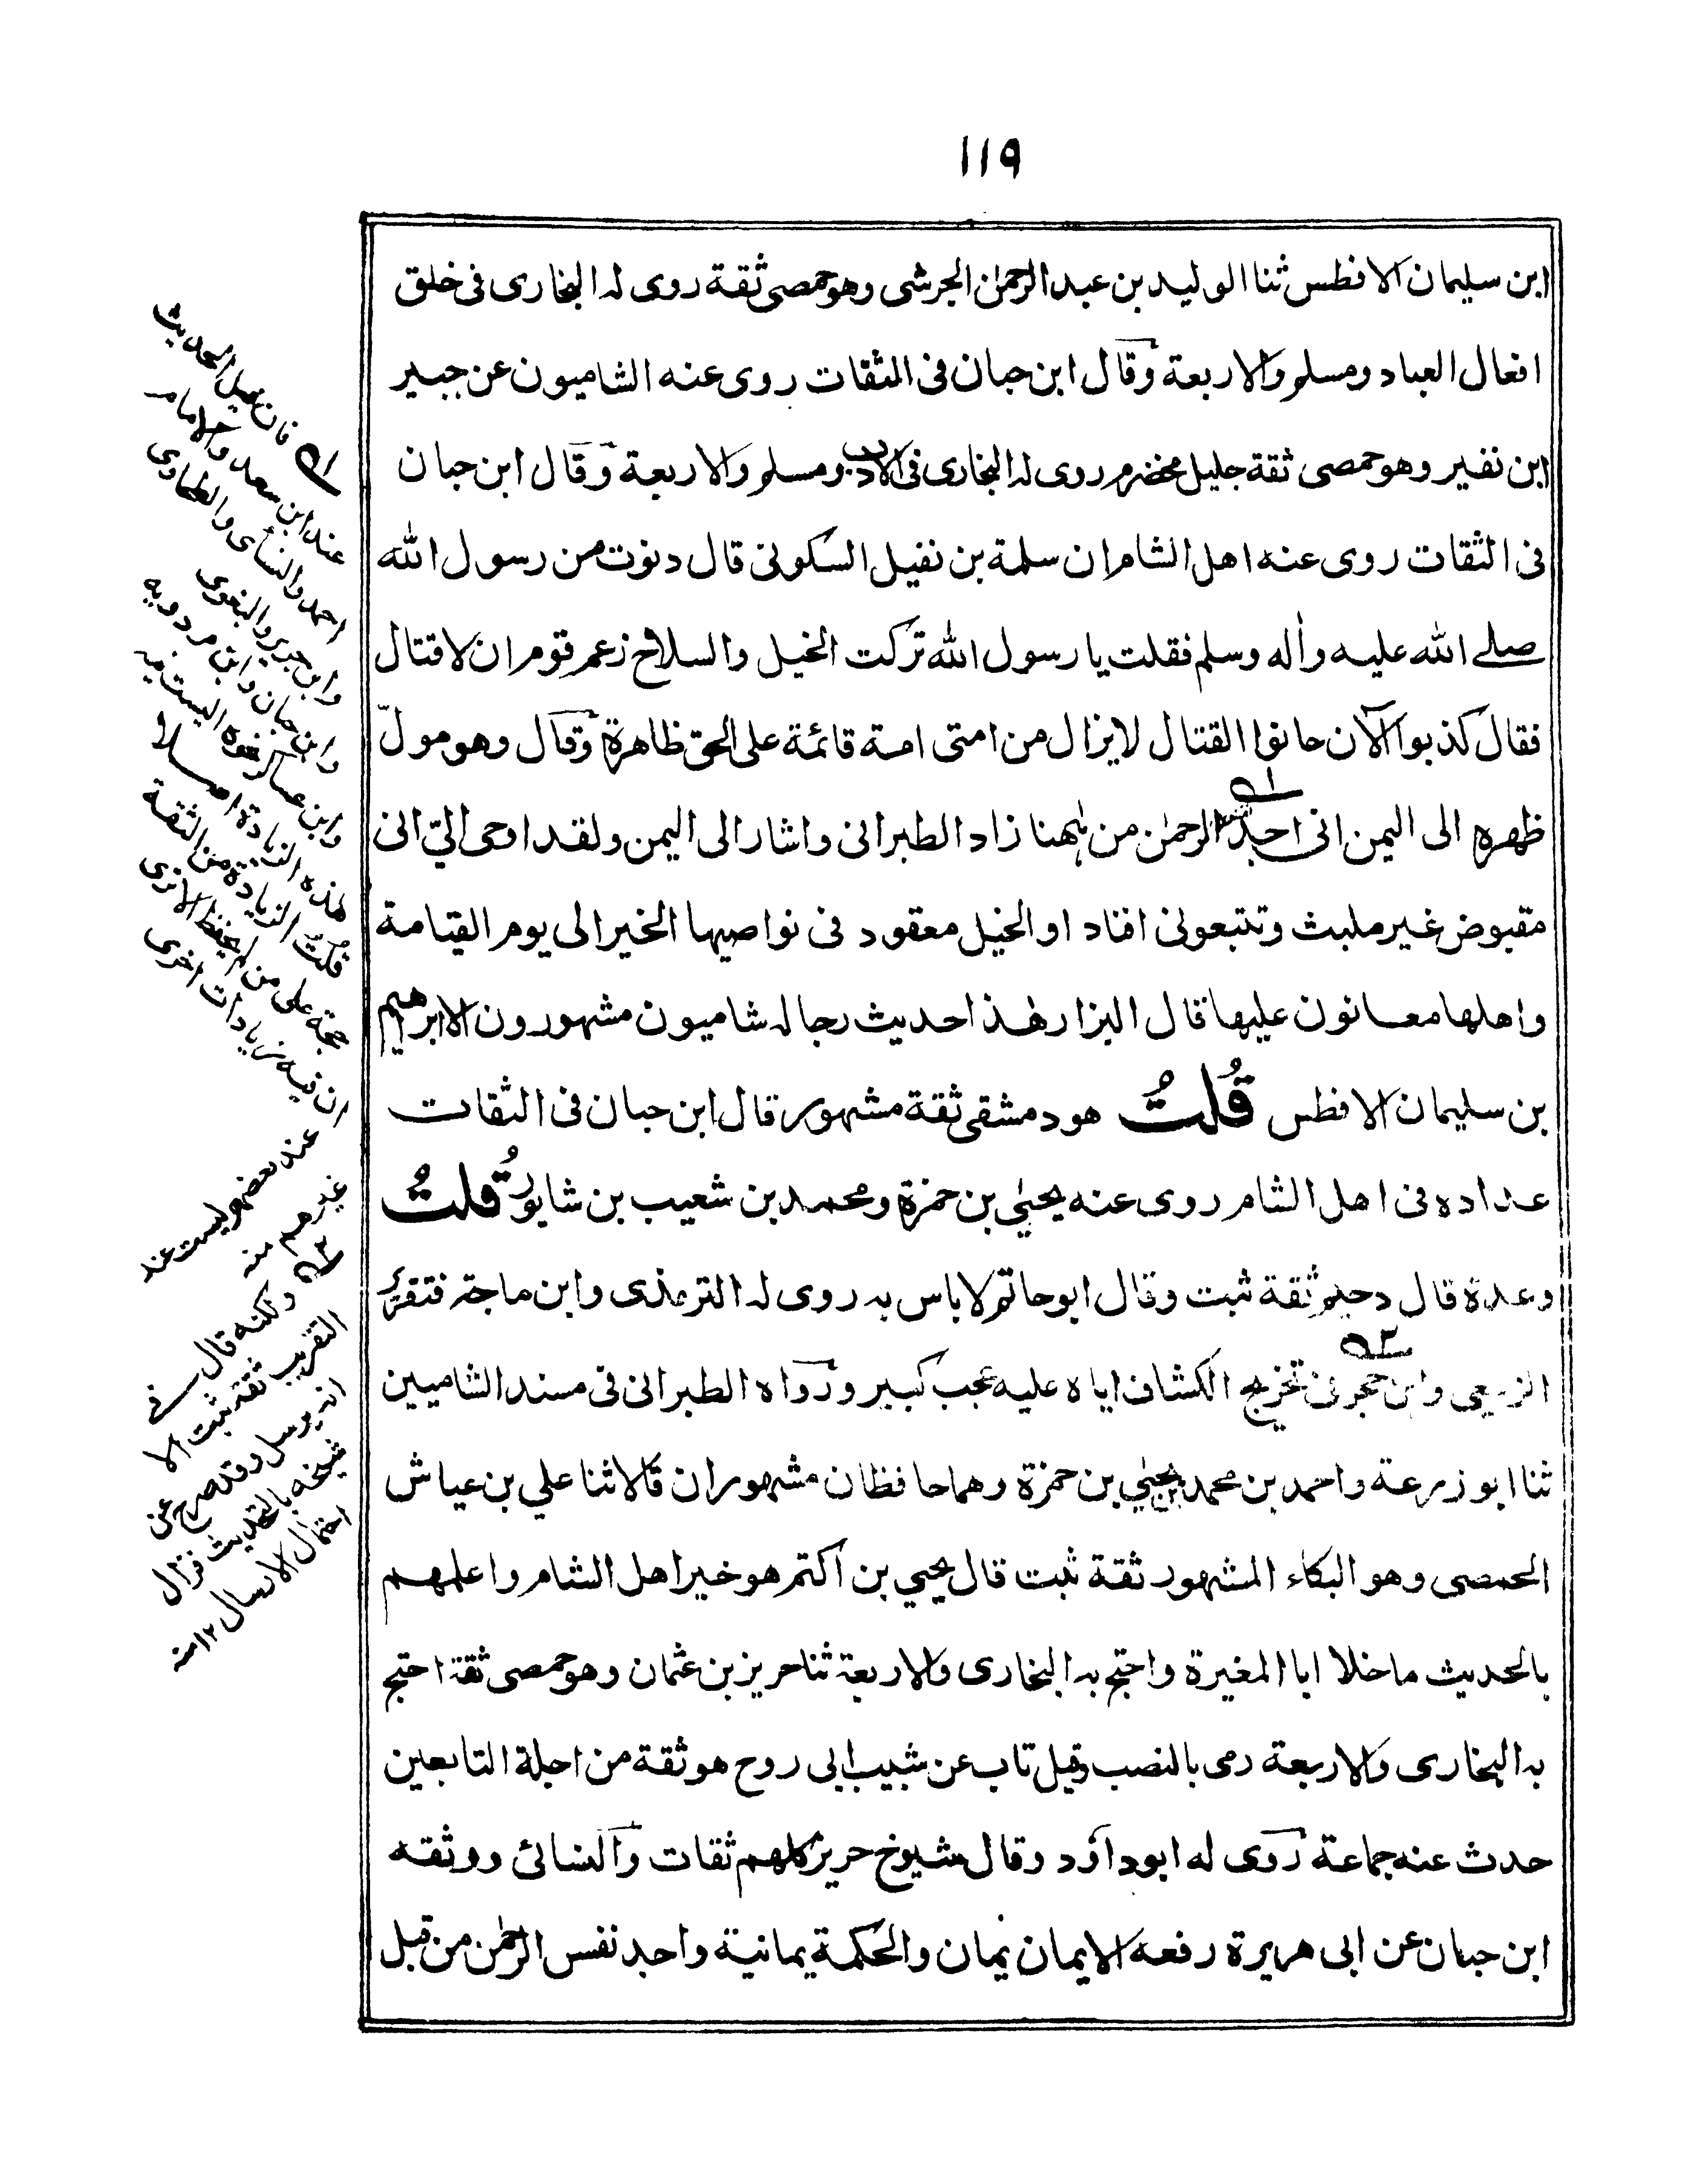 ١١٩
ابن سليمان الافطس ثنا الوليد بن عبد الرحمٰن الجرشى وهو حمصى ثقة روى له البخارى فى خلق
افعال العباد ومسلم والاربعة وقال ابن حبان فى الثقات روى عنه الشاميون عن جبير
ابن نفير وهو حمصى ثقة جليل مخضرم روى له البخارى فى الادب ومسلم والاربعة وقال ابن حبان
فى الثقات روى عنه اهل الشام ان سلمة بن نفيل السكونى قال دنوت من رسول الله
صلے الله عليه واٰله وسلم فقلت يا رسول الله تركت الخيل والسلاح زعم قوم ان لا قتال
فقال كذبوا الآن حانوا القتال لا يزال من امتى امة قائمة على الحق ظاهرة وقال وهو مولّ
ظهره الى اليمن انى اجد نفس الرحمٰن من ہٰهنا زاد الطبرانى واشار الى اليمن ولقد اوحى الىّ انى
مقبوض غير ملبث وتتبعونى افناد او الخيل معقود فى نواصيها الخير الى يوم القيامة
واهلها معانون عليها قال البزار هٰذا حديث رجاله شاميون مشهورون الا ابرٰهيم
بن سليمان الافطس قُلتُ هو دمشقى ثقة مشهور قال ابن حبان فى الثقات
عداده فى اهل الشام روى عنه يحيىٰ بن حمزة ومحمد بن شعيب بن شابور قُلتُ
وعدة قال دحيم ثقة ثبت وقال ابو حاتم لا باس به روى له الترمذى وابن ماجة فتقرير
الزيلعي وابن حجر فى تخريج الكشاف اياه عليه عجب كبير ورواه الطبرانى فى مسند الشاميين
ثنا ابو زرعة واحمد بن محمد بن يحيىٰ بن حمزة وهما حافظان مشهوران قالا ثنا علي بن عياش
الحمصى وهو البكاء المشهور ثقة ثبت قال يحيي بن اكتم هو خير اهل الشام واعلمهم
بالحديث ما خلا ابا المغيرة واحتج به البخارى والاربعة ثنا حريز بن عثمان وهو حمصى ثقة احتج
به البخارى والاربعة رمى بالنصب وقيل تاب عن شبيب ابى روح هو ثقة من اجلة التابعين
حدث عنه جماعة روى له ابو داؤد وقال شيوخ حريز كلهم ثقات والنسائى ووثقه
ابن حبان عن ابى هريرة رفعه الايمان يمان والحكمة يمانية واجد نفس الرحمٰن من قبل
١ـه فان نفيل الحديث
عند ابن سعد والامام
احمد والنسأى والطحاوى
وابن جرير والبغوى
وابن حبان وابن مردويه
وابن عساكر نحوه اليست فيه
هٰذه الزيادة اصلا
قلتُ الزيادة من الثقة
حجة على من لم يحفظ الا ترى
ان فيه زيادات اخرى
عند بعضهم ليست عند
غيرهم منه
٢ـه ولكنه قال فے
التقريب ثقة ثبت الا
انه يرسل وقد صرح عن
شيخه بالتحديث فزال
احتمال الارسال ١٢ منه